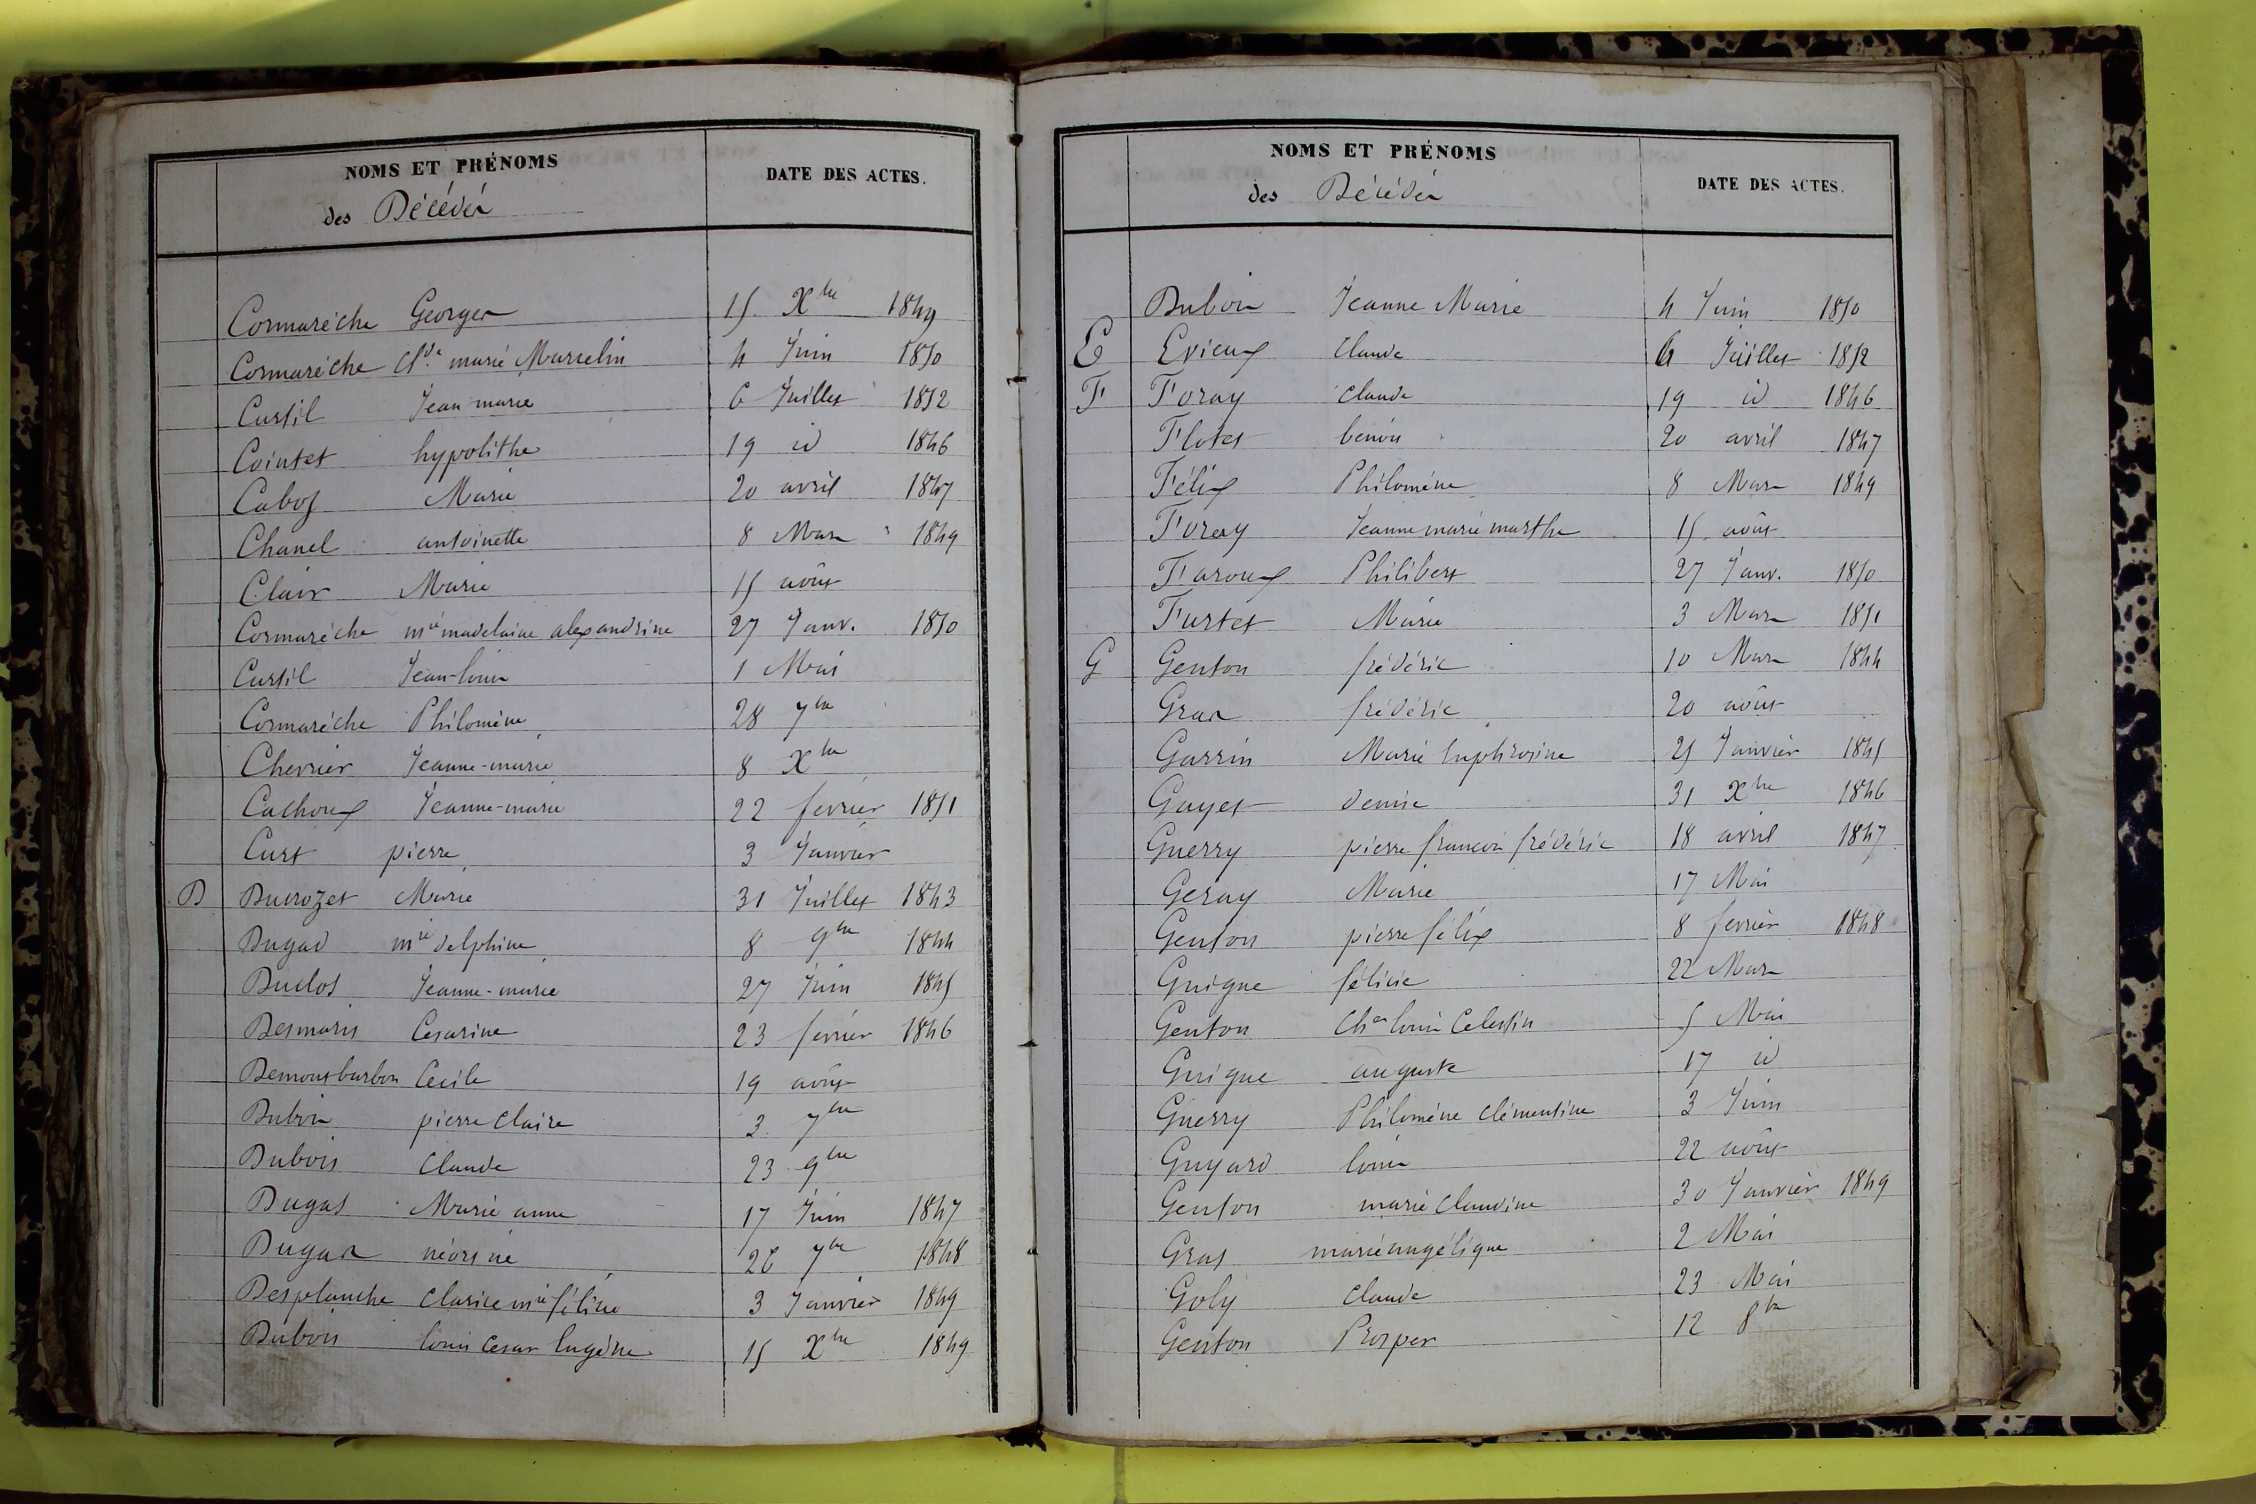 NOMS ET PRÉNOMS DATE DES ACTES.
des Décédés
Cormarèche Georges 15 Xbre 1849
Cormarèche Clde marie Marcelin 4 Juin 1850
Curtil Jean marie 6 Juillet 1852
Cointet hypolithe 19 id 1846
Caboz Marie 20 avril 1847
Chanel antoinette 8 Mars 1849
Clair Marie 15 août
Cormarèche mie madelaine alexandrine 27 Janv. 1850
Curtil Jean-louis 1 Mai
Cormarèche Philomène 28 7bre
Chevrier Jeanne-marie 8 Xbre
Cachoux Jeanne-marie 22 fevrier 1851
Curt pierre 3 Janvier
D Ducrozet Marie 31 Juillet 1843
Dugad mie delphine 8 9bre 1844
Duclos Jeanne-marie 27 Juin 1845
Desmaris Cesarine 23 fevrier 1846
Demontbarbon Cecile 19 août
Dubois pierre claire 3 7bre
Dubois Claude 23 9bre
Dugas Marie anne 17 Juin 1847
Dugas 26 7bre 1848
Desplanche Clarice mie féline 3 Janvier 1849
Dubois louis Cesar Eugène 15 Xbre 1849
NOMS ET PRÉNOMS DATE DES ACTES.
des Décédés
Dubois Jeanne Marie 4 Juin 1850
E Evieux Claude 6 Juillet 1852
F Foray Claude 19 id 1846
Flotet benois 20 avril 1847
Félix Philomène 8 Mars 1849
Foray Jeanne marie marthe 15 août
Faroux Philibert 27 Janv. 1850
Furtet Marie 3 Mars 1851
G Genton frédéric 10 Mars 1844
Gras frédéric 20 août
Garrin Marie Euphrosine 25 Janvier 1845
Gayet denise 31 Xbre 1846
Guerry pierre françois frédéric 18 avril 1847
Geray Marie 17 Mai
Genton pierre félix 8 fevrier 1848
Guigue félicie 22 Mars
Genton Ches louis Celestin 5 Mai
Guigue auguste 17 id
Guerry Philomène clémentine 3 Juin
Guyard louis 22 août
Genton marie Claudine 30 Janvier 1849
Gras marie angélique 2 Mai
Goly Claude 23 Mai
Genton Prosper 12 8bre